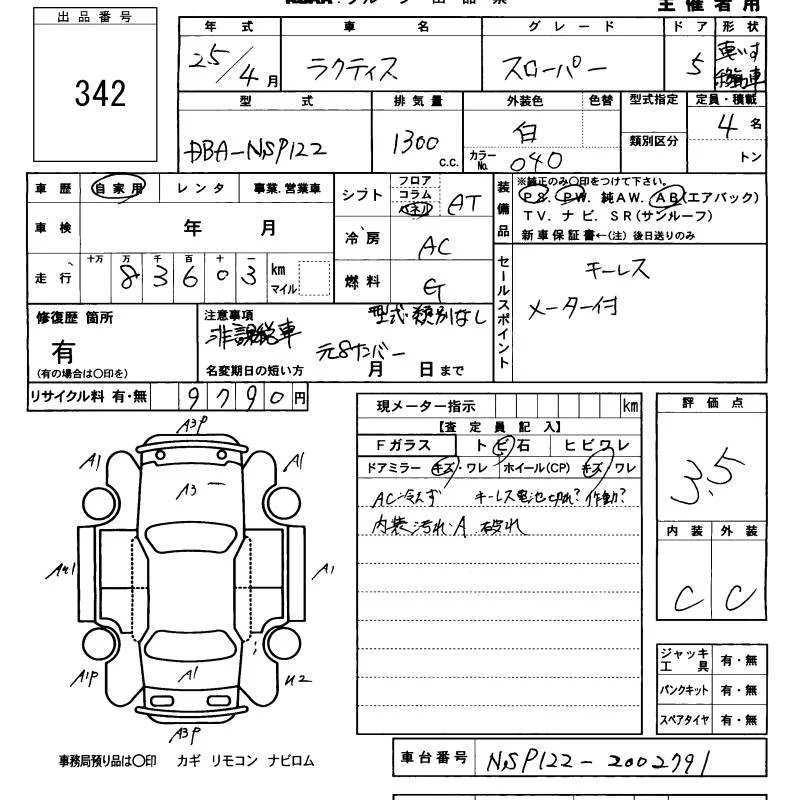 グループ 出品票
主催者用
出品番号
342
年式 車名 グレード ドア 形状
25/4月 ラクティス スローパー 5 車いす移動車
型式 排気量 外装色 色替 型式指定 定員・積載
DBA-NSP122 1300c.c. 白 4名
カラーNo. 040 類別区分 トン
車歴 自家用 レンタ 事業.営業車
車検 年 月
走行 十万 万 千 百 十
83603 km マイル
シフト フロア コラム パネル AT
冷房 AC
燃料 G
装備品
※純正のみ〇印をつけて下さい。
PS. PW. 純AW. AB(エアバック)
TV. ナビ. SR(サンルーフ)
新車保証書←(注)後日送りのみ
セールスポイント
キーレス
メーター付
修復歴 箇所
有
(有の場合は〇印を)
注意事項
型式・類別なし
非課税車
元8ナンバー
名変期日の短い方 月 日まで
リサイクル料 有・無 9790円
現メーター指示 km
【査定員記入】
Fガラス トビ石 ヒビワレ
ドアミラー キズ・ワレ ホイール(CP) キズ・ワレ
AC冷えず キーレス電池切れ? 作動?
内装汚れ・A 破れ
評価点
3.5
内装 外装
C C
A3P
A1 A1
A3
A1
A1P A1 U2
A3P
ジャッキ工具 有・無
パンクキット 有・無
スペアタイヤ 有・無
事務局預り品は〇印 カギ リモコン ナビロム
車台番号 NSP122-2002791